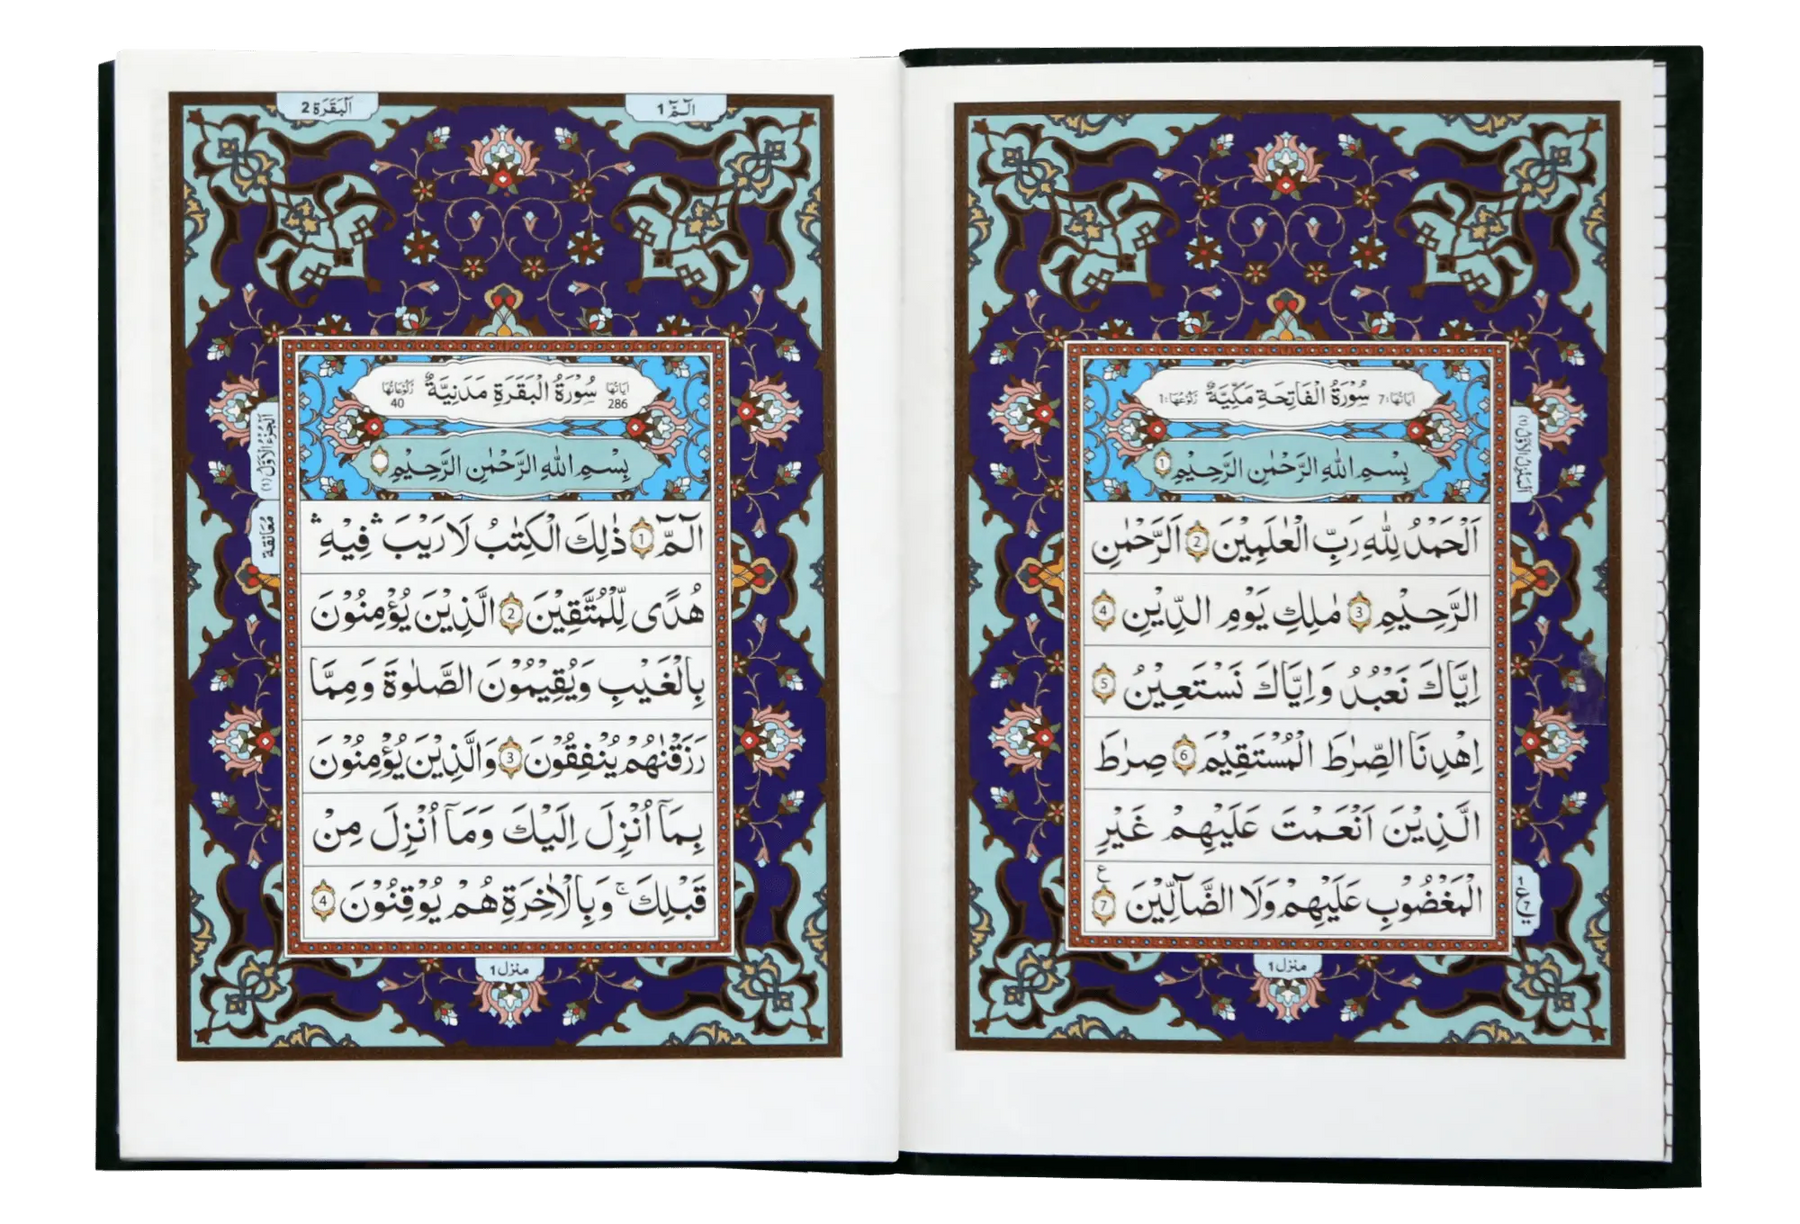 اٰیَاتُهَا:7 سُوْرَةُ الْفَاتِحَةِ مَكِّیَّةٌ رُكُوْعُهَا:1
بِسْمِ اللهِ الرَّحْمٰنِ الرَّحِیْمِ 1
اَلْحَمْدُ لِلّٰهِ رَبِّ الْعٰلَمِیْنَ 2 الرَّحْمٰنِ
الرَّحِیْمِ 3 مٰلِكِ یَوْمِ الدِّیْنِ 4
اِیَّاكَ نَعْبُدُ وَاِیَّاكَ نَسْتَعِیْنُ 5
اِهْدِنَا الصِّرٰطَ الْمُسْتَقِیْمَ 6 صِرٰطَ
الَّذِیْنَ اَنْعَمْتَ عَلَیْهِمْ غَیْرِ
الْمَغْضُوْبِ عَلَیْهِمْ وَلَا الضَّآلِّیْنَ 7 ع
اَلْمَنْزِلُ الْاَوَّلُ (1)
1 ع 7
منزل 1
الٓمّٓ 1
اَلْبَقَرَة 2
اٰیَاتُهَا 286 سُوْرَةُ الْبَقَرَةِ مَدَنِیَّةٌ رُكُوْعَاتُهَا 40
بِسْمِ اللهِ الرَّحْمٰنِ الرَّحِیْمِ
الٓمّٓ 1 ذٰلِكَ الْكِتٰبُ لَا رَیْبَ ۛ فِیْهِ ۛ
هُدًی لِّلْمُتَّقِیْنَ 2 الَّذِیْنَ یُؤْمِنُوْنَ
بِالْغَیْبِ وَیُقِیْمُوْنَ الصَّلٰوةَ وَمِمَّا
رَزَقْنٰهُمْ یُنْفِقُوْنَ 3 وَالَّذِیْنَ یُؤْمِنُوْنَ
بِمَآ اُنْزِلَ اِلَیْكَ وَمَآ اُنْزِلَ مِنْ
قَبْلِكَ ۚ وَبِالْاٰخِرَةِ هُمْ یُوْقِنُوْنَ 4
اَلْجُزْءُ الْاَوَّلُ (1)
مُعَانَقَة
منزل 1